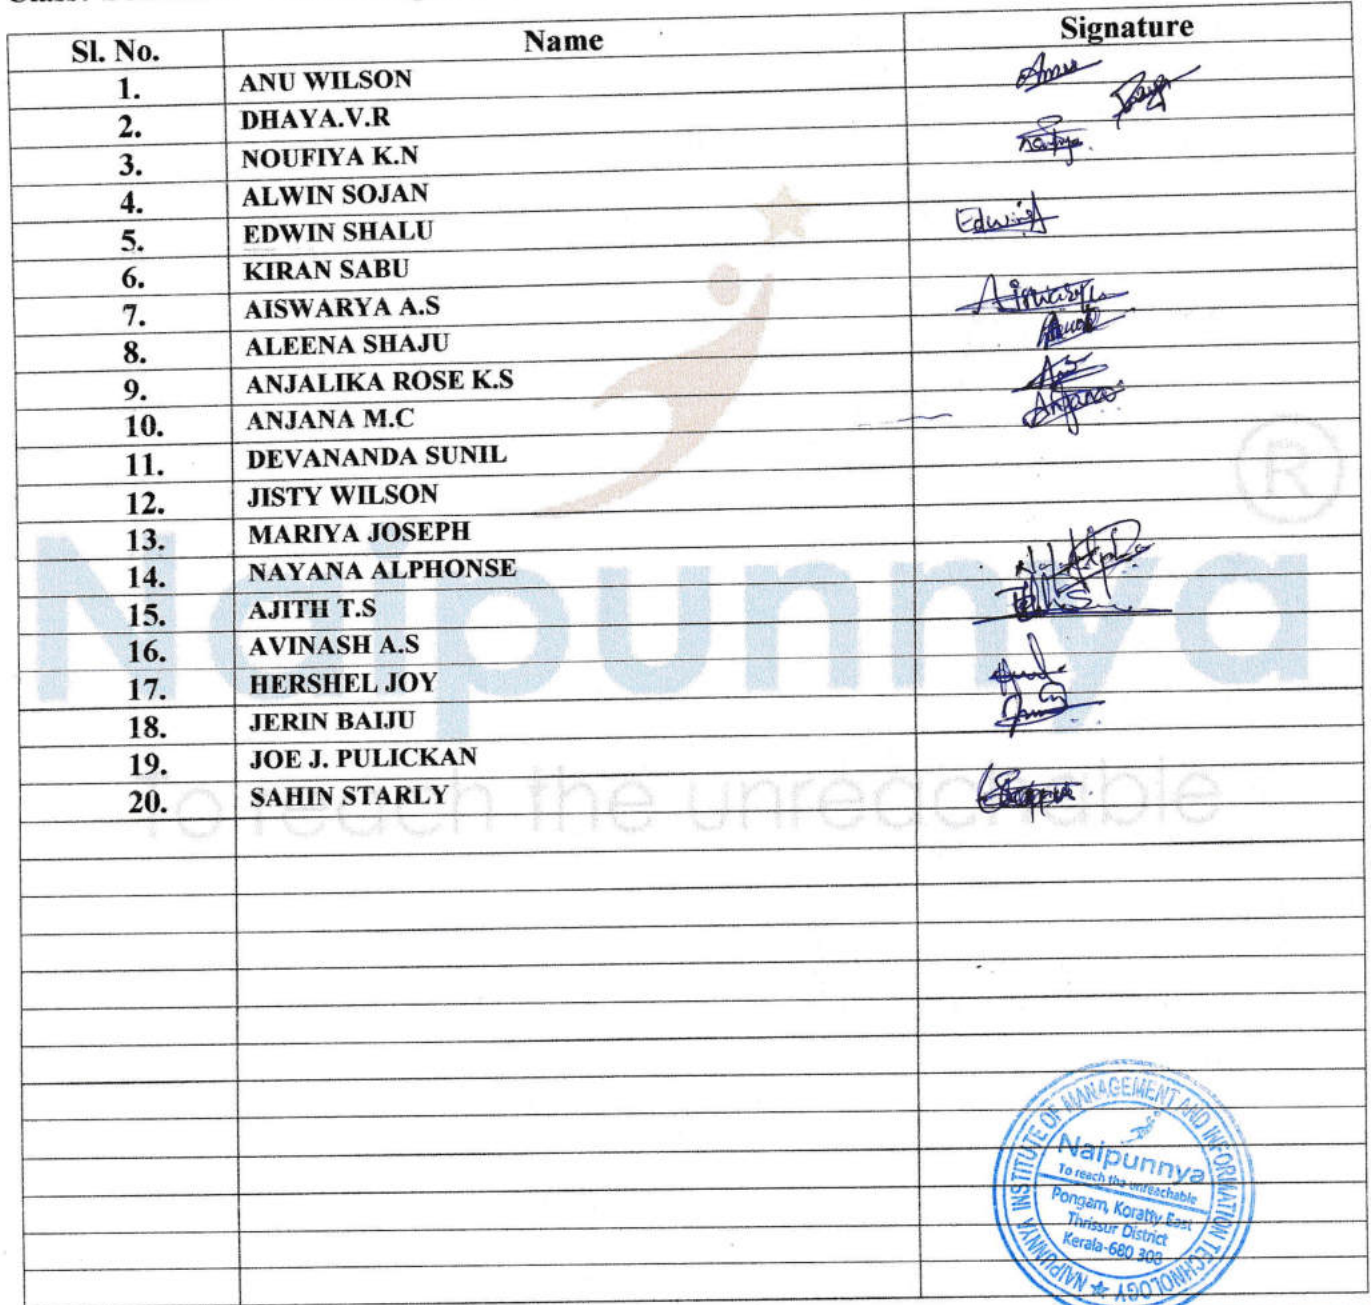 Sl. No. Name Signature
1. ANU WILSON Anu
2. DHAYA.V.R
3. NOUFIYA K.N
4. ALWIN SOJAN
5. EDWIN SHALU Edwin
6. KIRAN SABU
7. AISWARYA A.S Aiswarya
8. ALEENA SHAJU
9. ANJALIKA ROSE K.S
10. ANJANA M.C Anjana
11. DEVANANDA SUNIL
12. JISTY WILSON
13. MARIYA JOSEPH
14. NAYANA ALPHONSE
15. AJITH T.S
16. AVINASH A.S
17. HERSHEL JOY
18. JERIN BAIJU
19. JOE J. PULICKAN
20. SAHIN STARLY
Naipunnya
®
To reach the unreachable
NAIPUNNYA INSTITUTE OF MANAGEMENT AND INFORMATION TECHNOLOGY
Naipunnya
To reach the unreachable
Pongam, Koratty East
Thrissur District
Kerala-680 308